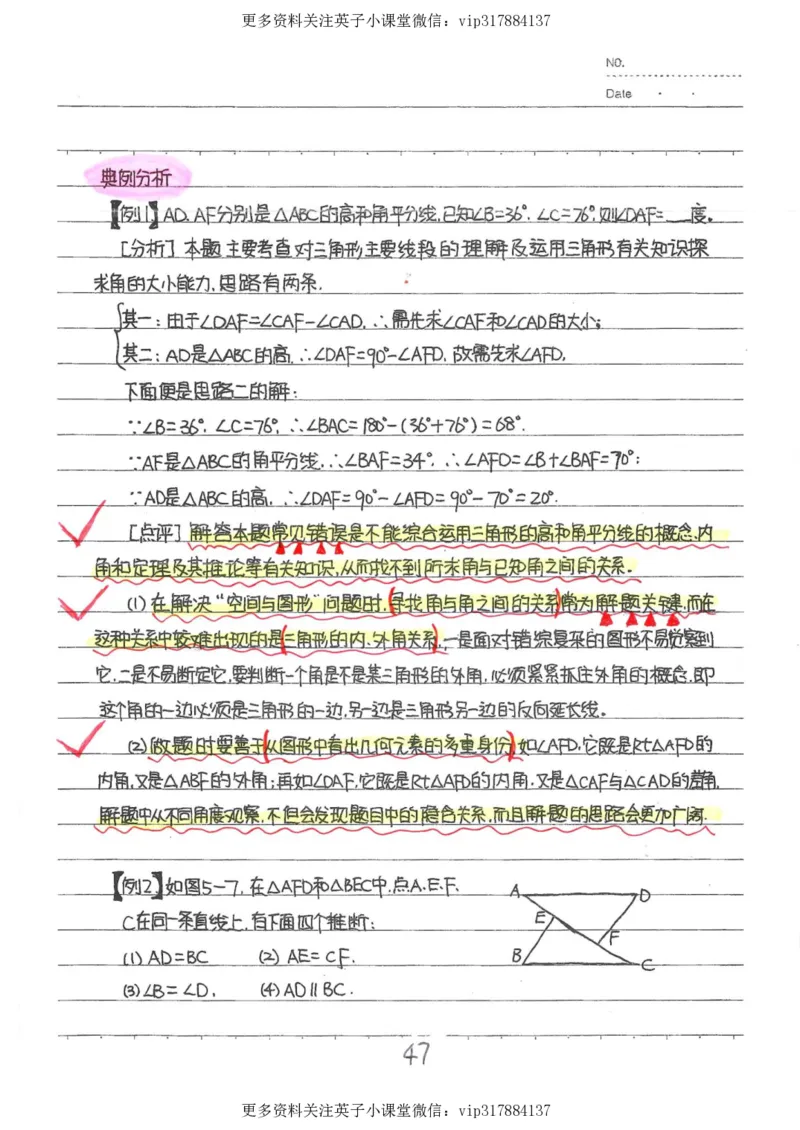 更多资料关注英子小课堂微信：vip317884137
NO.
Date · ·
典例分析
【例1】AD、AF分别是△ABC的高和角平分线,已知∠B=36°, ∠C=76°,则∠DAF=___度。
[分析] 本题主要考查对三角形主要线段的理解及运用三角形有关知识探
求角的大小能力,思路有两条.
其一：由于∠DAF=∠CAF-∠CAD, ∴需先求∠CAF和∠CAD的大小；
其二：AD是△ABC的高, ∴∠DAF=90°-∠AFD, 故需先求∠AFD,
下面便是思路二的解：
∵∠B=36°, ∠C=76°, ∴∠BAC=180°-(36°+76°)=68°.
∵AF是△ABC的角平分线,∴∠BAF=34°, ∴∠AFD=∠B+∠BAF=70°；
∵AD是△ABC的高, ∴∠DAF=90°-∠AFD=90°-70°=20°.
[点评] 解答本题常见错误是不能综合运用三角形的高和角平分线的概念、内
角和定理及其推论等有关知识,从而找不到所求角与已知角之间的关系。
(1) 在解决“空间与图形”问题时,寻找角与角之间的关系常为解题关键,而在
这种关系中较难出现的是三角形的内、外角关系,一是面对错综复杂的图形不易觉察到
它,二是不易断定它,要判断一个角是不是某三角形的外角,必须紧紧抓住外角的概念,即
这个角的一边必须是三角形的一边,另一边是三角形另一边的反向延长线。
(2) 做题时要善于从图形中看出几何元素的多重身份,如∠AFD,它既是Rt△AFD的
内角,又是△ABF的外角；再如∠DAF,它既是Rt△AFD的内角,又是△CAF与△CAD的差角,
解题中从不同角度观察,不但会发现题目中的隐含关系,而且解题的思路会更加广阔.
【例2】如图5-7, 在△AFD和△BEC中,点A、E、F、
C在同一条直线上,有下面四个推断：
(1) AD=BC (2) AE=CF.
(3) ∠B=∠D, (4) AD∥BC.
A
D
E
F
B
C
47
更多资料关注英子小课堂微信：vip317884137